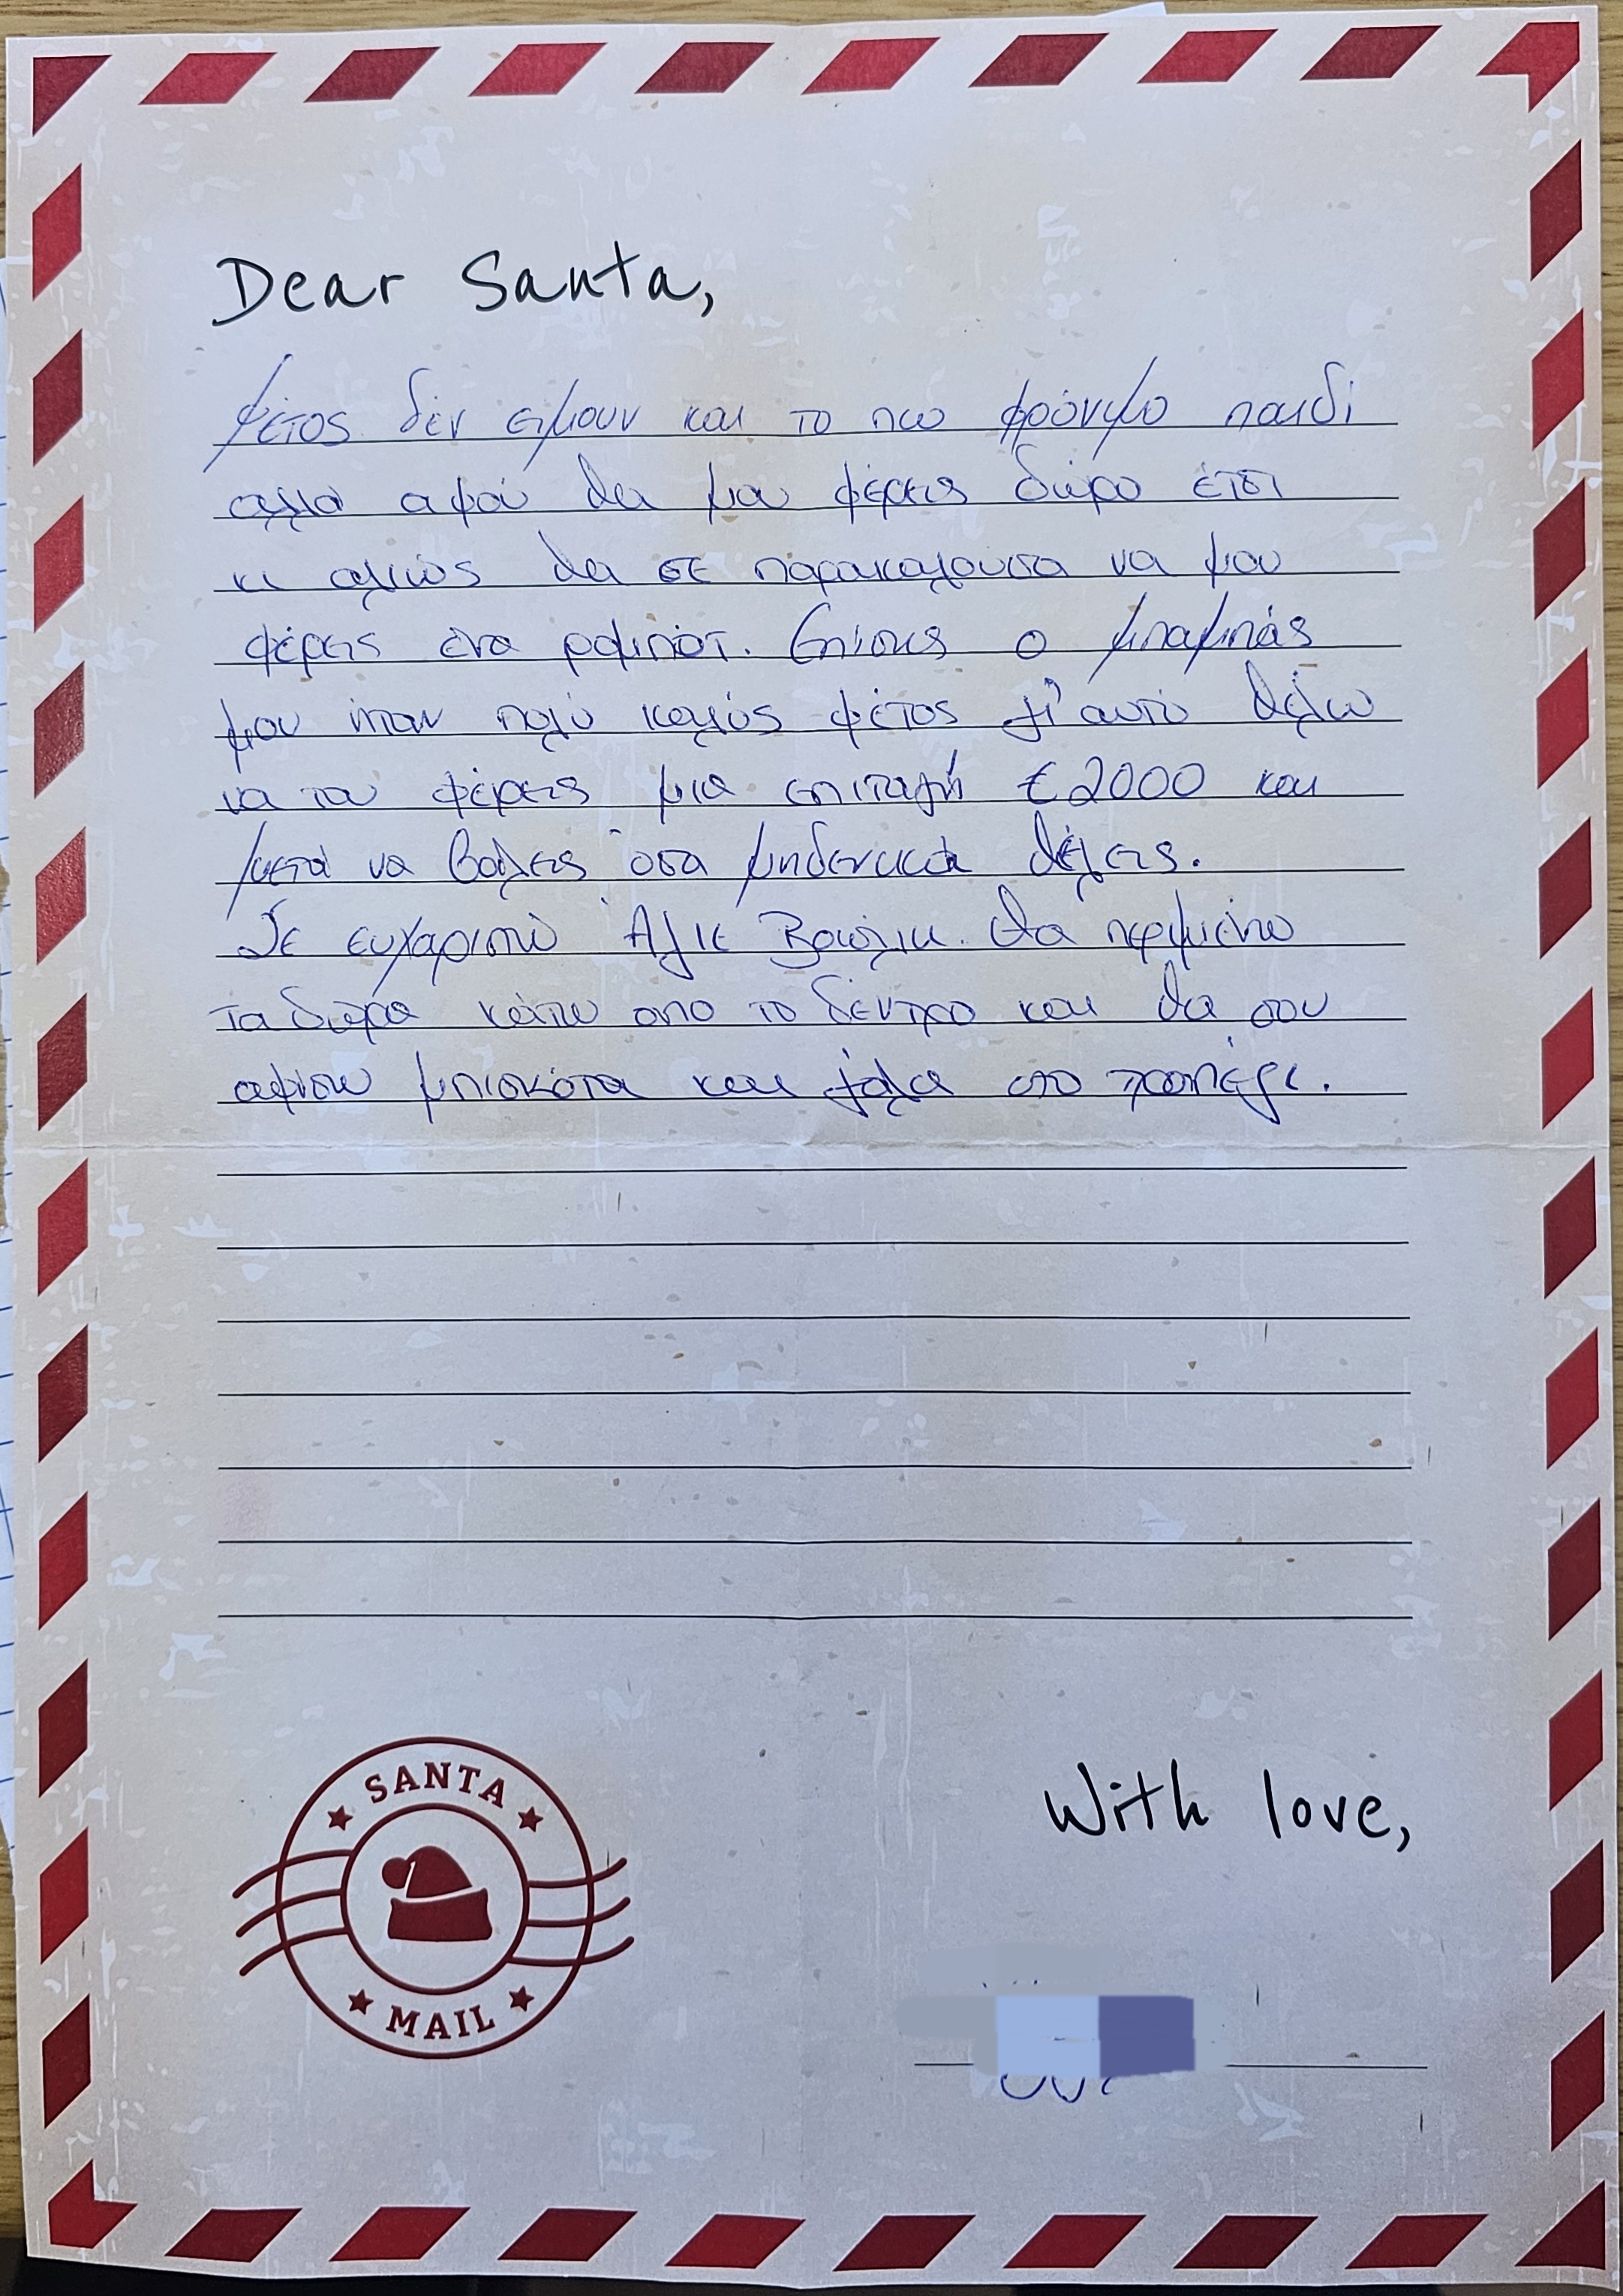 Dear Santa,
φέτος δεν ειμουν και το πιο φρόνιμο παιδί
αλλά αφού θα μου φέρεις δώρο έτσι
κι αλιώς θα σε παρακαλουσα να μου
φέρεις ένα ρομπότ. Επίσης ο μπαμπάς
μου ήταν πολύ καλός φέτος γι' αυτό θέλω
να του φέρεις μια επιταγή €2000 και
μετά να βάλεις όσα μηδενικά θέλεις.
Σε ευχαριστώ Άγιε Βασίλη. Θα περιμένω
τα δώρα κάτω απο το δέντρο και θα σου
αφίσω μπισκότα και γάλα στο τραπέζι.
SANTA
MAIL
With love,